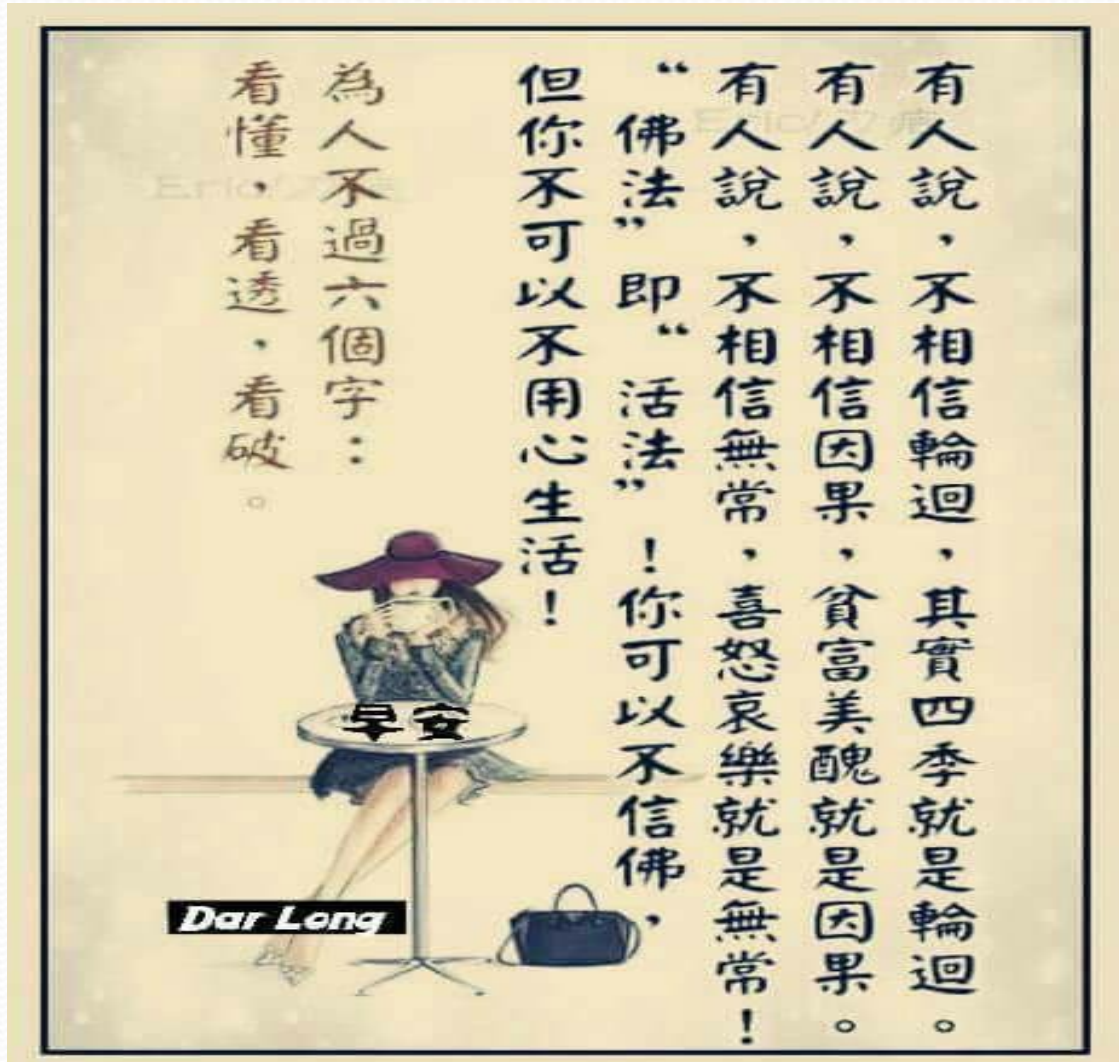 有人說，不相信輪迴，其實四季就是輪迴。
有人說，不相信因果，貧富美醜就是因果。
有人說，不相信無常，喜怒哀樂就是無常！
“佛法”即“活法”！你可以不信佛，
但你不可以不用心生活！
為人不過六個字：
看懂，看透，看破。
早安
Dar Long